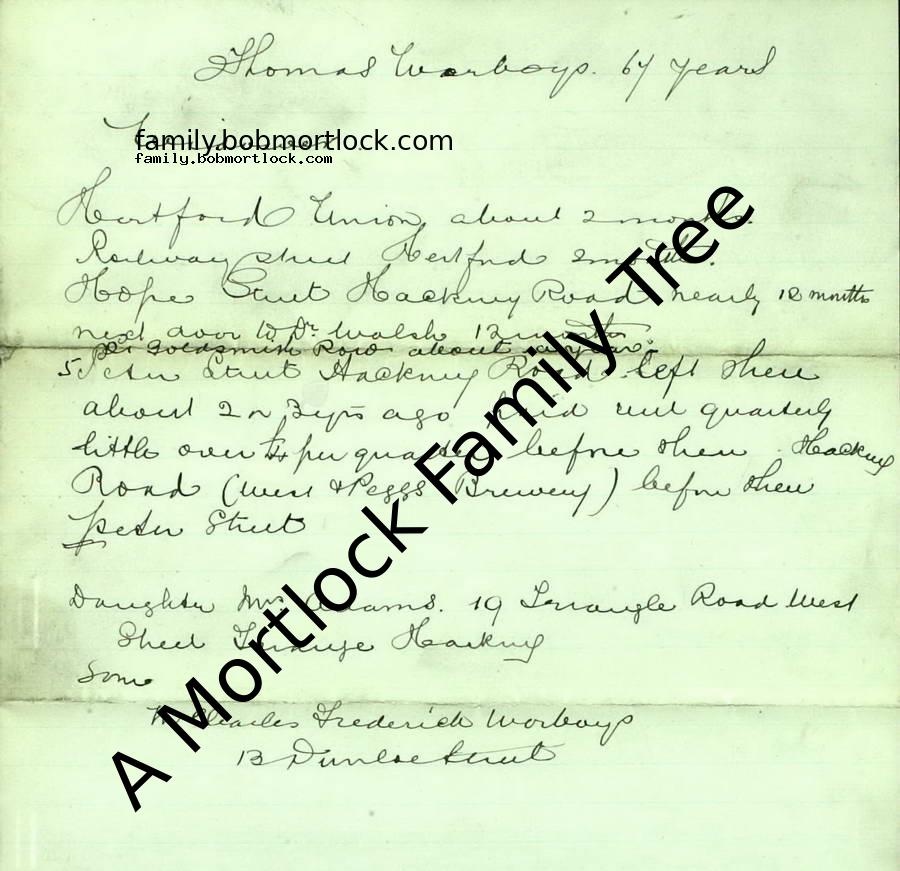 Thomas Worboys. 67 years
family.bobmortlock.com
family.bobmortlock.com
Hertford Union about 2 months.
Railway Street Hertford 2 months.
Hope Street Hackney Road nearly 12 months
next door to Dr. Walsh 12 months
Goldsmith Row about
5 Peter Street Hackney Road. left there
about 2 or 3 yrs ago paid rent quarterly
little over £4 per quarter before then. Hackney
Road (West & Peggs Brewery) before then
Peter Street
Daughter Mrs Adams. 19 Triangle Road West
Street Triangle Hackney
Sons
Charles Frederick Worboys
13 Dunloe Street
A Mortlock Family Tree